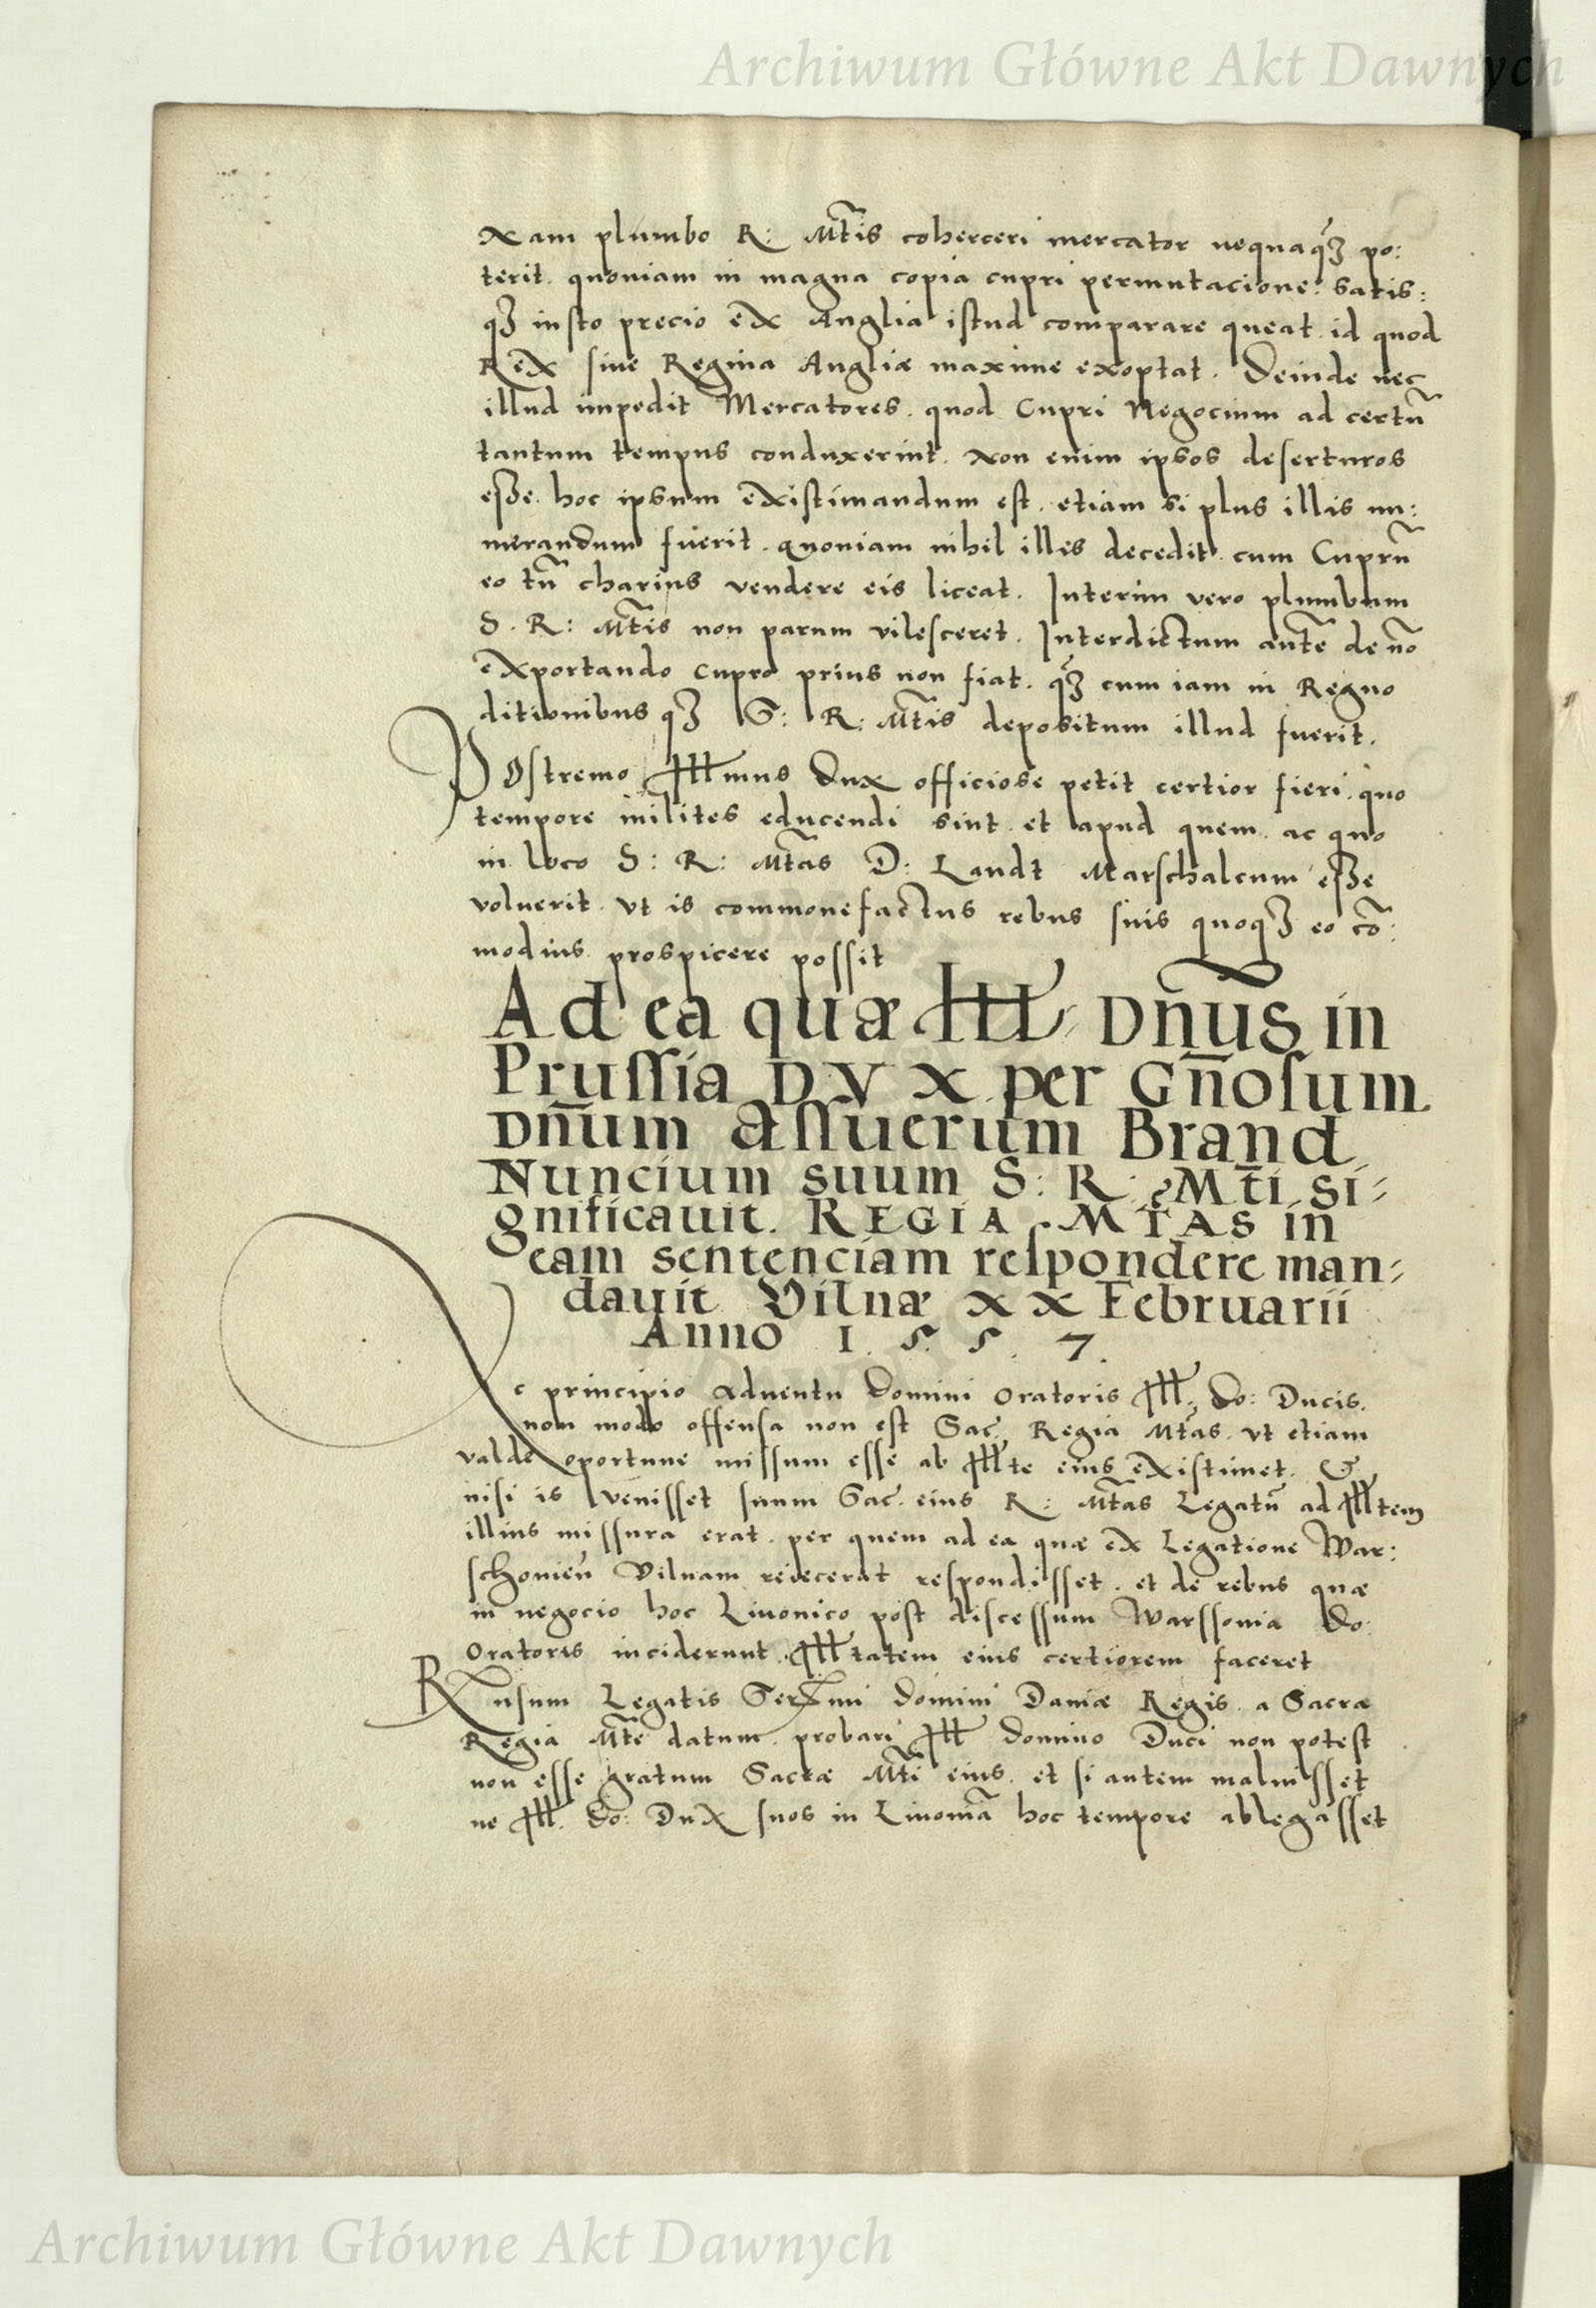 Archiwum Główne Akt Dawnych
Nam plumbo R: Mtis coherceri mercator nequaqȝ po:
terit. quoniam in magna copia cupri permutacione: satis:
qȝ iusto precio ex Anglia istud comparare queat. id quod
Rex siue Regina Angliæ maxime exoptat. Deinde nec
illud impedit Mercatores. quod Cupri Negocium ad certū
tantum tempus conduxerint. Non enim ipsos deserturos
esse. hoc ipsum existimandum est. etiam si plus illis nu:
merandum fuerit. quoniam nihil illis decedit. cum Cuprū
eo tū charius vendere eis liceat. Interim vero plumbum
S. R: Mtis non parum vilesceret. Interdictum aute de nō
exportando cupro prius non fiat. qȝ cum iam in Regno
ditionibus qȝ S: R: Mtis depositum illud fuerit.
Postremo Illmus Dux officiose petit certior fieri. quo
tempore milites educendi sint. et apud quem. ac quo
in loco S: R: Mtas D: Landt Marschalcum esse
voluerit. vt is commonefactus rebus suis quoqȝ eo cō:
modius prospicere possit
Ad ea quæ Ill: Dn̄us in
Prussia DVX per Gn̄osum
Dn̄um Assuerum Brand
Nuncium suum S: R: Mti si-
gnificauit. REGIA MTAS in
eam sentenciam respondere man-
dauit Vilnæ XX Februarii
Anno 1.5.5.7.
Ac principio Aduentu Domini Oratoris Ill. do: Ducis.
non modo offensa non est Sac. Regia Mtas. vt etiam
valde oportune missum esse ab Illte eius existimet. Et
nisi is venisset suum Sac. eius R: Mtas Legatū ad Illtem
illius missura erat. per quem ad ea quæ ex Legatione War:
schonien̄ Vilnam reiecerat respondisset. et de rebus quæ
in negocio hoc Liuonico post discessum Warssouia Do:
Oratoris inciderunt. Illtatem eius certiorem faceret
Rnsum Legatis Serxmi domini Daniæ Regis. a Sacra
Regia Mte datum. probari Ill domino Duci non potest
non esse gratum Sacræ Mti eius. et si autem maluisset
ne Ill. do: Dux suos in Liuoniā hoc tempore ablegasset
Archiwum Główne Akt Dawnych